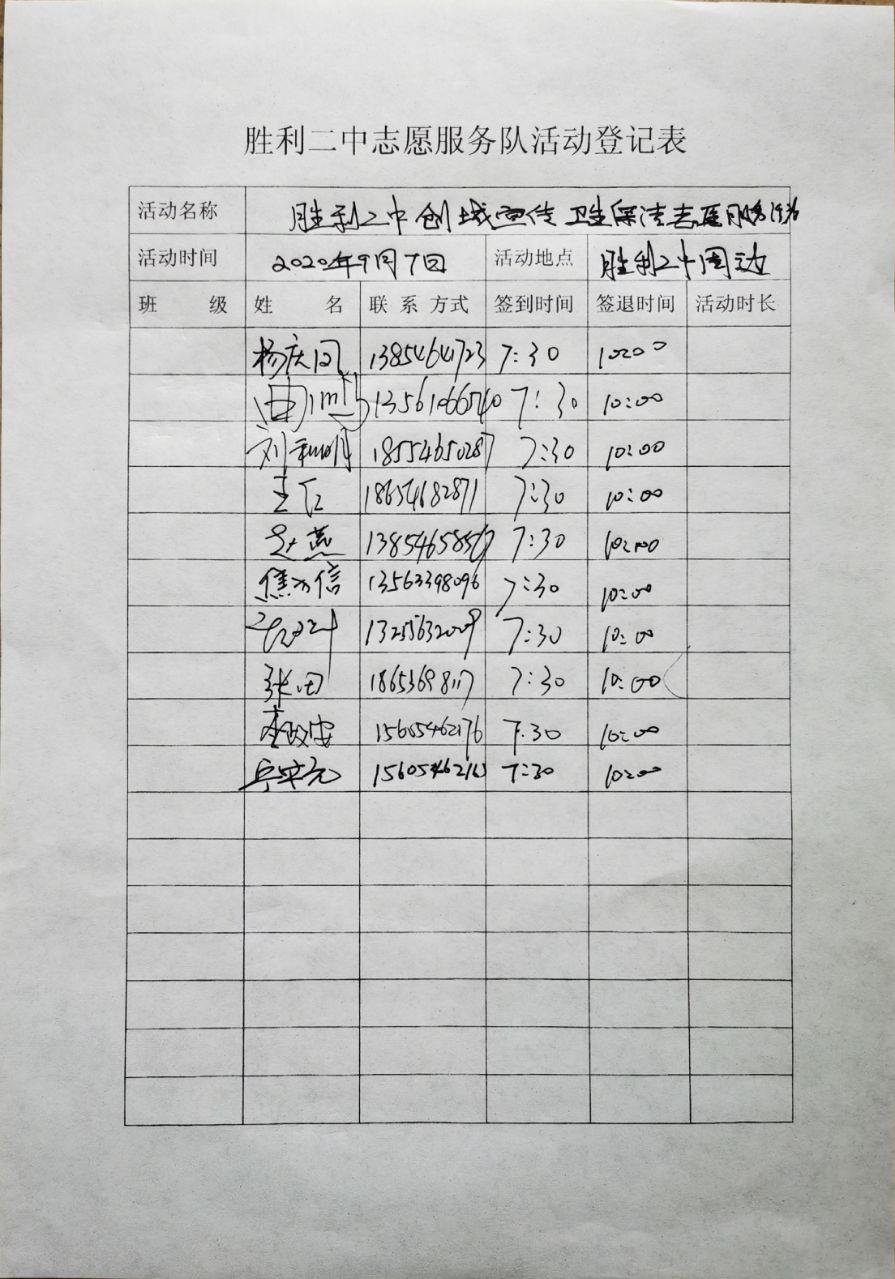 胜利二中志愿服务队活动登记表
活动名称 胜利二中创城宣传 卫生保洁志愿服务活动
活动时间 2020年9月7日 活动地点 胜利二中周边
班 级 姓 名 联系方式 签到时间 签退时间 活动时长
杨庆凤 13854641723 7:30 10:00
13561066540 7:30 10:00
刘 18554650287 7:30 10:00
王仁 18654682871 7:30 10:00
赵燕 13854658567 7:30 10:00
焦方信 13563398096 7:30 10:00
13255632009 7:30 10:00
张田 7:30 10:00
李政安 15605462176 7:30 10:00
7:30 10:00